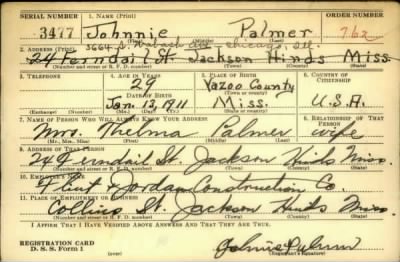 SERIAL NUMBER 1. NAME (Print) ORDER NUMBER
3477 Johnnie Palmer 762
3664 S. Wabash Ave Chicago, Ill.
2. ADDRESS (Print)
24 Ferndail St. Jackson Hinds Miss.
(Number and street or R. F. D. number) (Town) (County) (State)
3. TELEPHONE 4. AGE IN YEARS 5. PLACE OF BIRTH 6. COUNTRY OF CITIZENSHIP
Yazoo County
(Town or county)
DATE OF BIRTH
Jan. 13, 1911 Miss. U.S.A.
(Exchange) (Number) (Mo.) (Day) (Yr.) (State or country)
7. NAME OF PERSON WHO WILL ALWAYS KNOW YOUR ADDRESS 8. RELATIONSHIP OF THAT PERSON
Mrs. Thelma Palmer wife
(Mr., Mrs., Miss) (First) (Middle) (Last)
9. ADDRESS OF THAT PERSON
24 Ferndail St. Jackson Hinds Miss.
(Number and street or R. F. D. number) (Town) (County) (State)
10. EMPLOYER'S NAME
Flint & Jordan Construction Co.
11. PLACE OF EMPLOYMENT OR BUSINESS
Collins St. Jackson Hinds Miss.
(Number and street or R. F. D. number) (Town) (County) (State)
I AFFIRM THAT I HAVE VERIFIED ABOVE ANSWERS AND THAT THEY ARE TRUE.
REGISTRATION CARD
D. S. S. Form 1 (Registrant's signature)